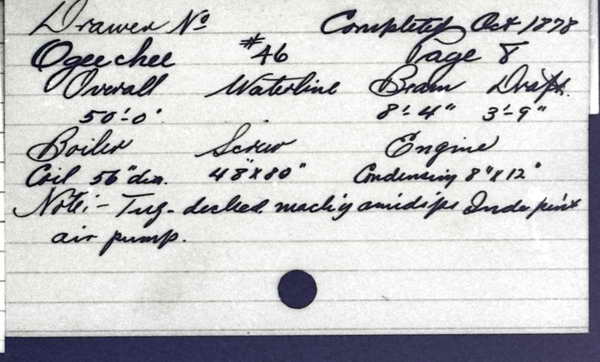 Drawer No Completed Oct 1878
Ogeechee #46 Page 8
Overall Waterline Beam Draft
50'-0" 8'-4" 3'-9"
Boiler Screw Engine
Coil 56" dia. 48" x 80" Condensing 8" x 12"
Note:- Tug- decked. mach'y amidships Independ't
air pump.